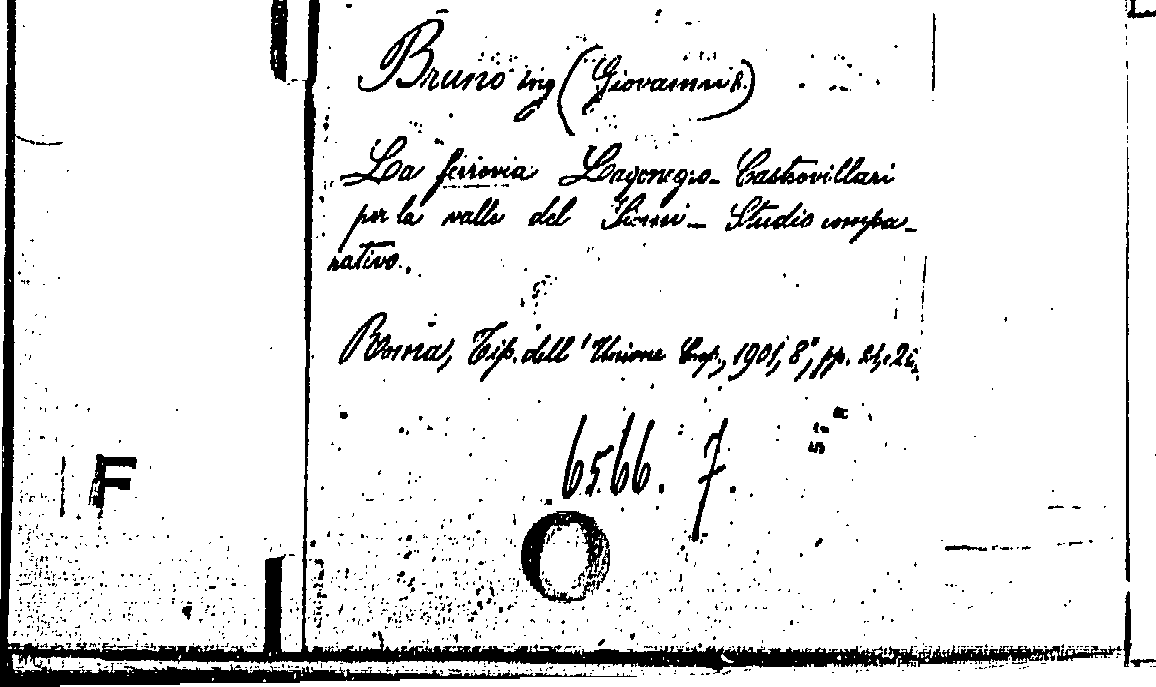 Bruno ing (Giovanni B.)
La ferrovia Lagonegro-Castrovillari
per la valle del Sinni - Studio compa-
rativo.
Roma, Tip. dell'Unione Coop., 1901, 8°, pp. 21,
6566. 7.
F